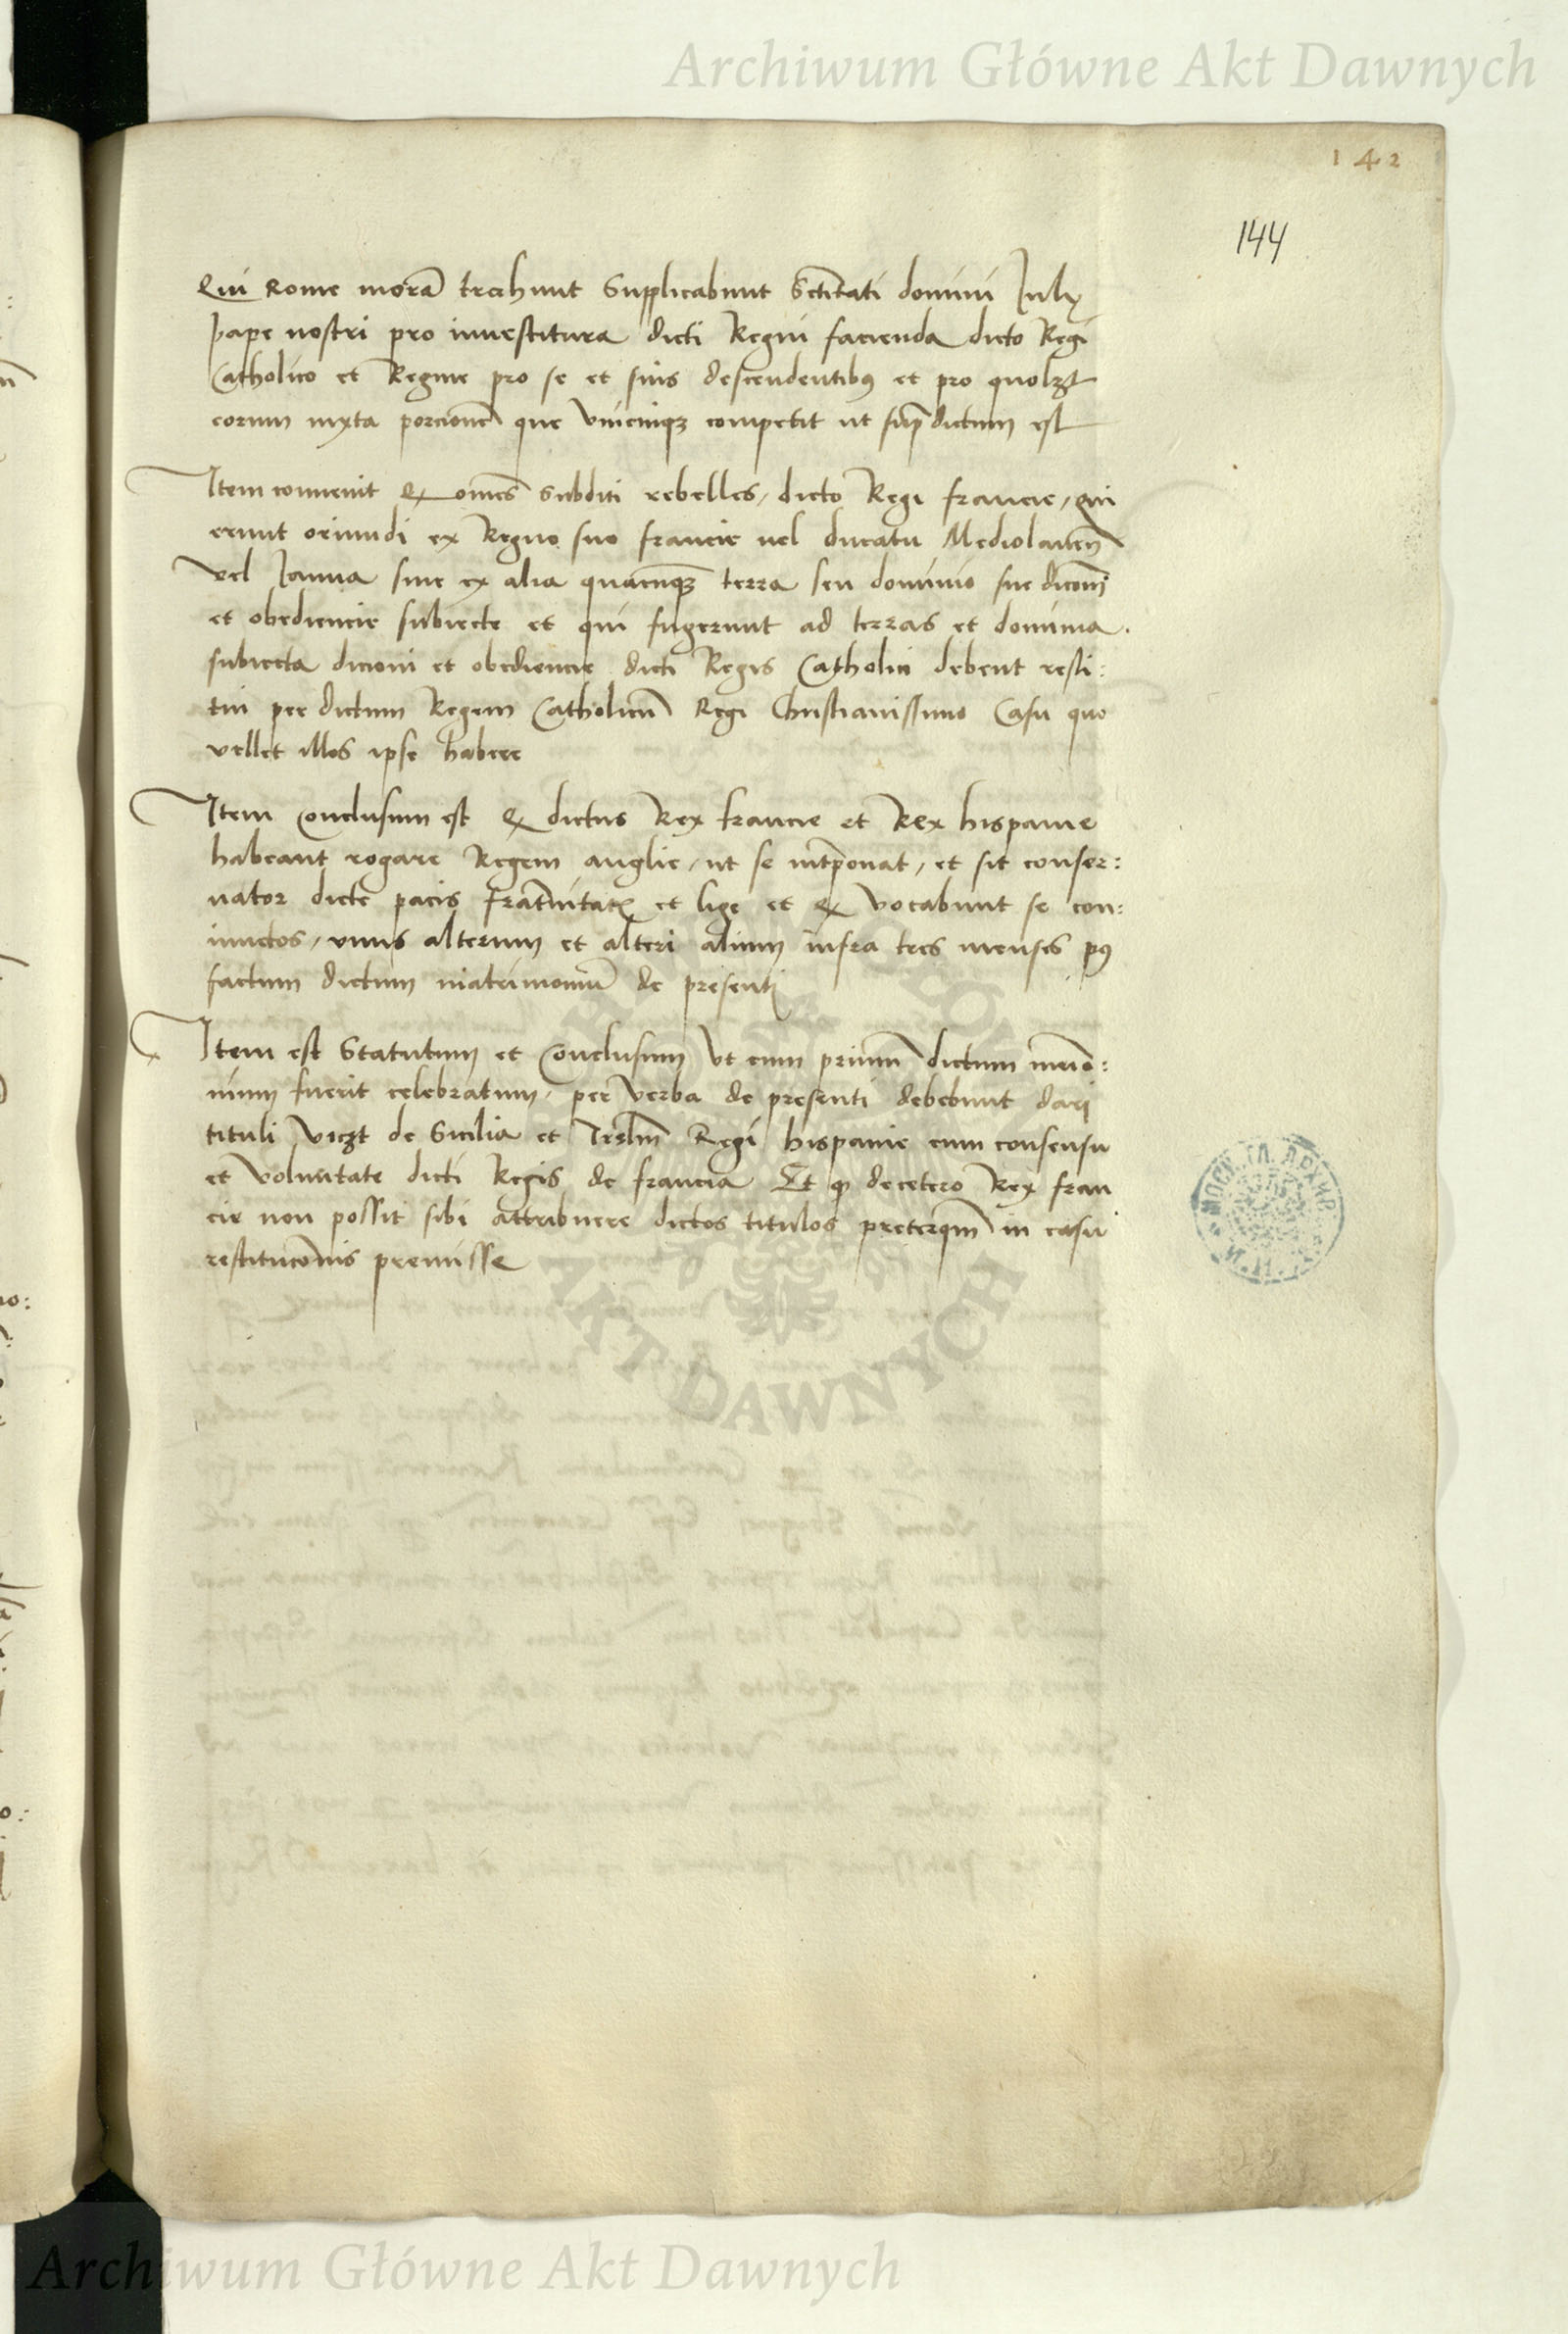 Archiwum Główne Akt Dawnych
142
144
Qui Rome morā trahunt Supplicabunt Sctītati domini Julij
pape nostri pro inuestitura dicti Regni facienda dicto Regi
Catholico et Regine pro se et suis descendentibꝯ et pro quolꝫt
eorum iuxta porcionē que vnicuiqꝫ competit ut sup̄dictum est
Item conuenit ꝙ omēs subditi rebelles, dicto Regi francie, qui
erunt oriundi ex Regno suo francie uel ducatu Mediolaneñ
vel Janua siue ex alia quacūqꝫ terra seu dominio sue dicōni
et obediencie subiecte et qui fugerunt ad terras et dominia
subiecta dicioni et obediencie dicti Regis Catholici debent resti:
tui per dictum Regem Catholicū Regi Christianissimo Casu quo
vellet illos ipse habere
Item Conclusum est ꝙ dictus Rex francie et Rex hispanie
habeant rogare Regem anglie, ut se int̄ponat, et sit conser:
uator dicte pacis frat̄nitatꝭ et lige et ꝙ vocabunt se con:
iunctos, vnus alterum et alteri alium infra tres menses pꝯ
factum dictum matrimoniū de presenti
Item est Statutum et Conclusum Vt cum primū dictum mrīo:
nium fuerit celebratum, per verba de presenti debebunt dari
tituli vicꝫt de Sicilia et Jrslm̄ Regi hispanie cum consensu
et voluntate dicti Regis de francia Et ꝙ de cetero Rex fran
cie non possit sibi attribuere dictos titulos preterqm̄ in casu
restitucōnis premisse
AKT DAWNYCH
Archiwum Główne Akt Dawnych